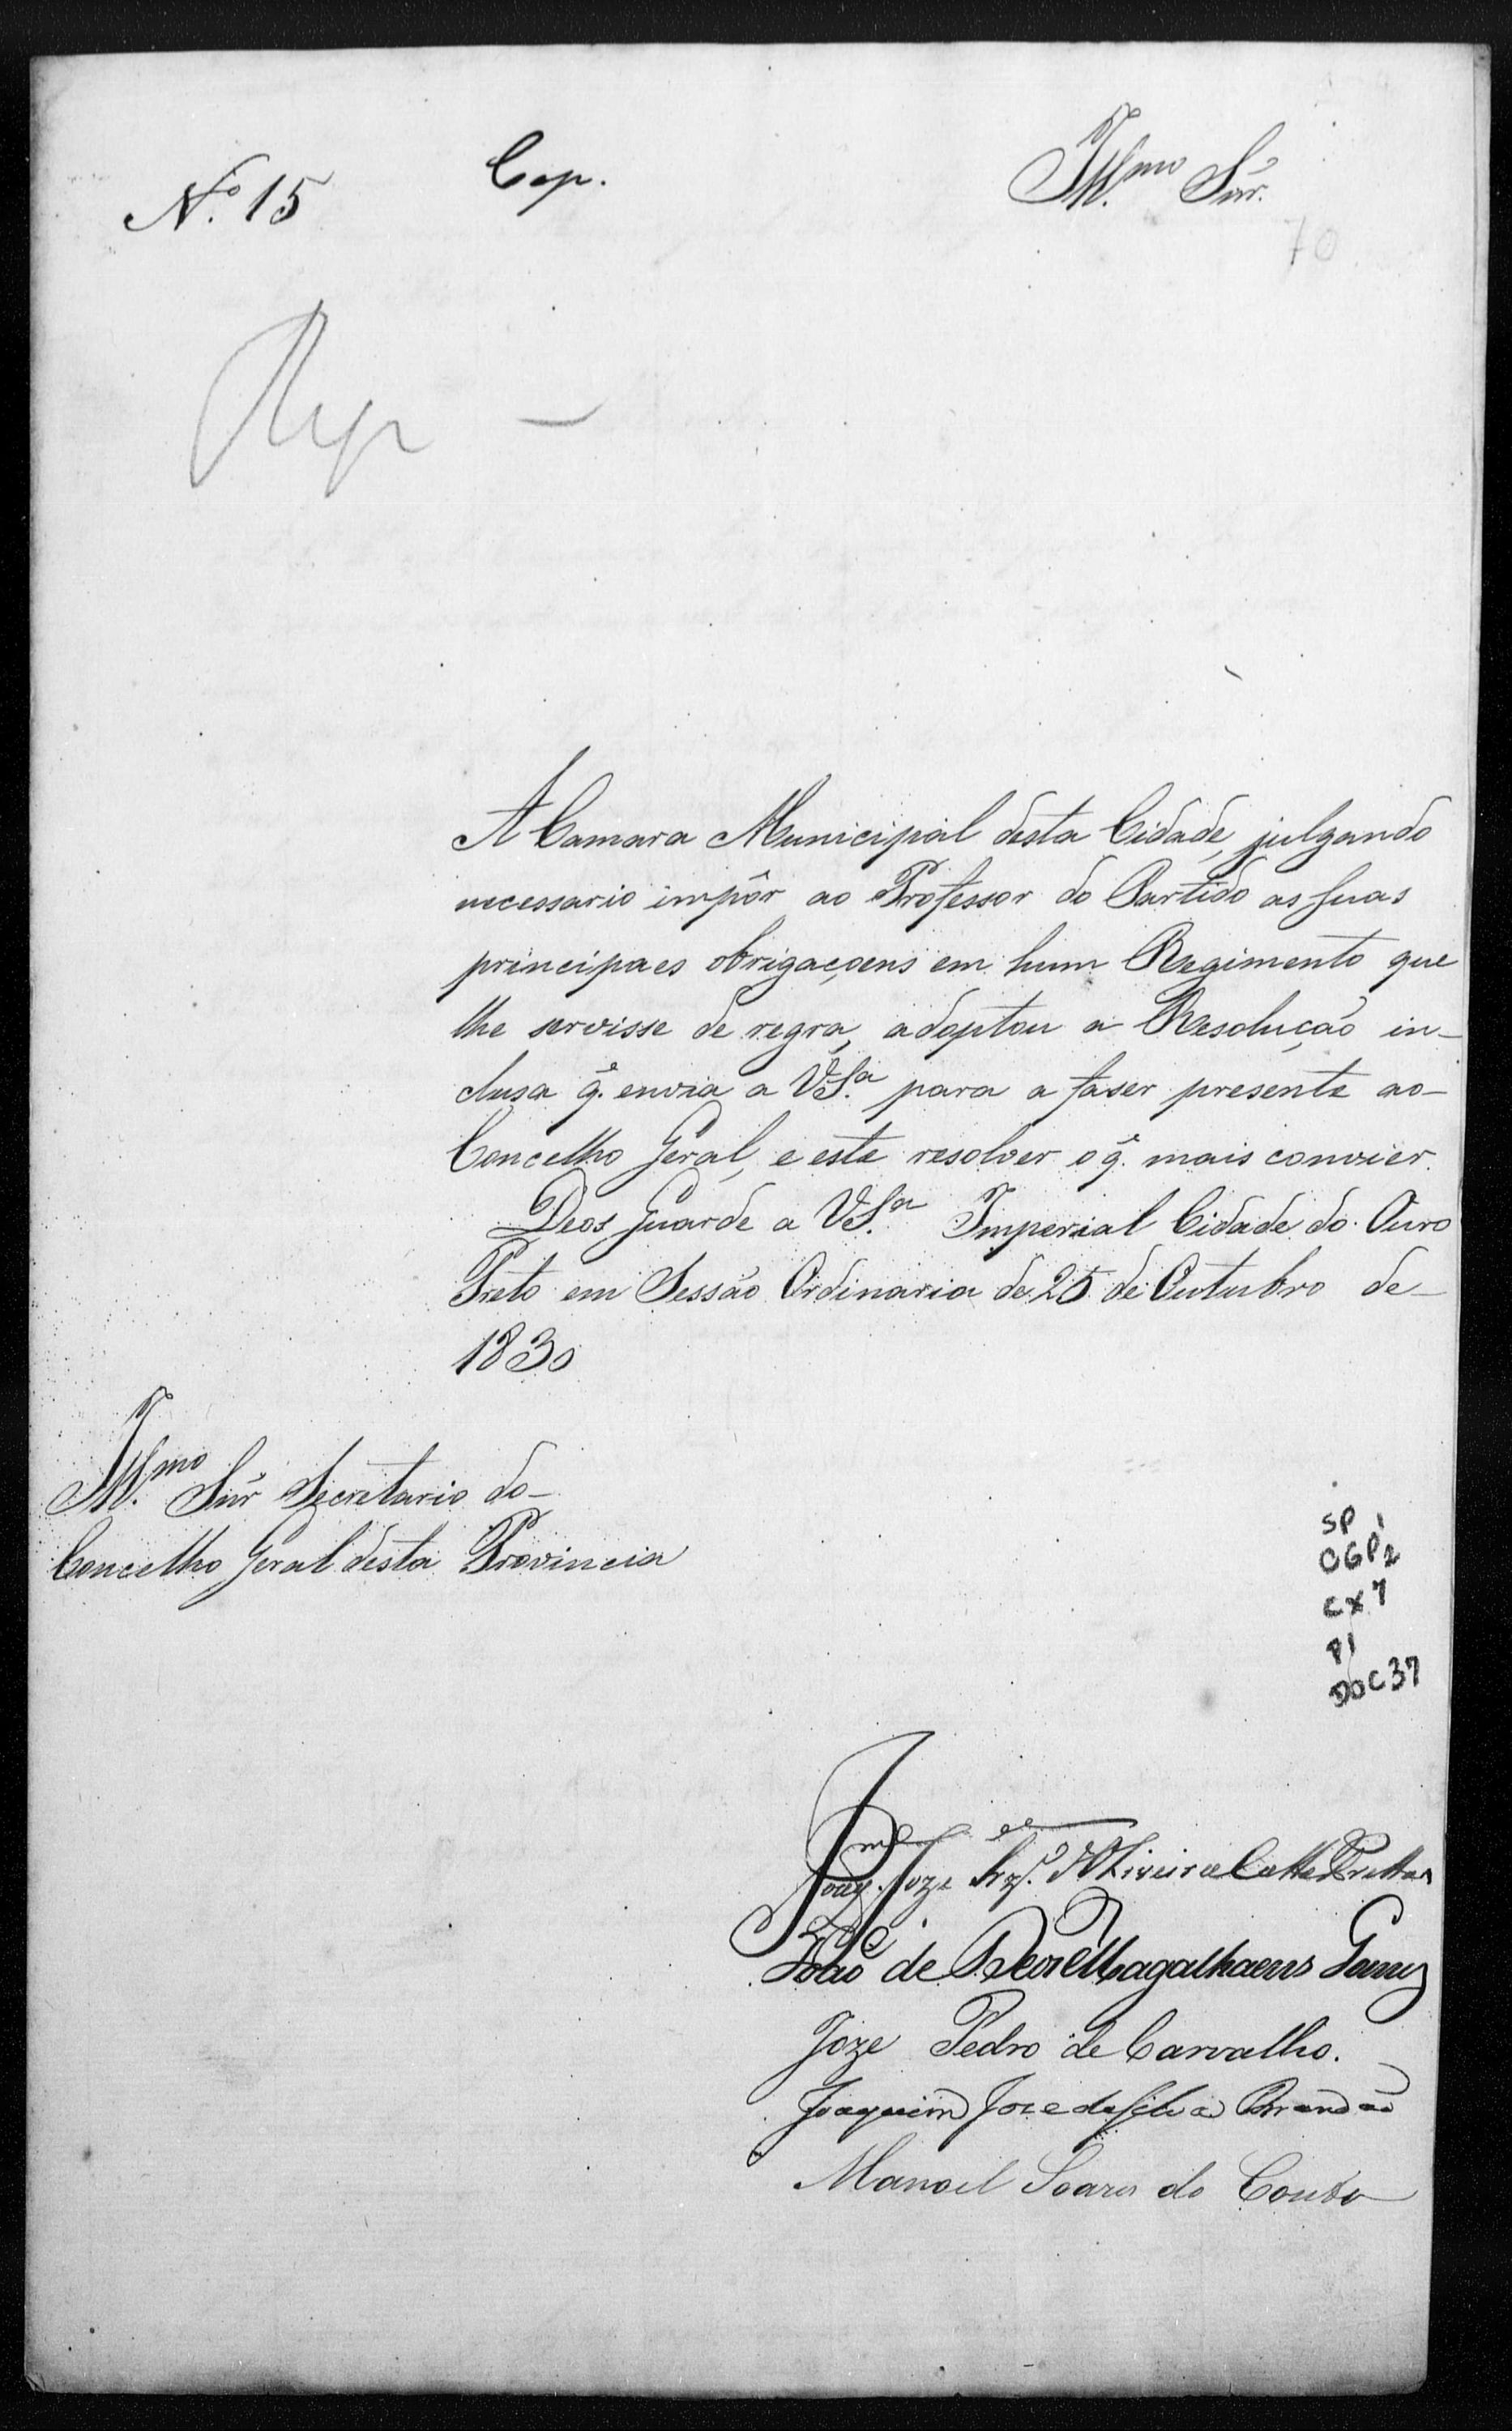 Nº. 15
Cop.
Ill.mo Snr.
70
A Camara Municipal desta Cidade, julgando
necessario impôr ao Professor do Partido as suas
principaes obrigaçoens em hum Regimento que
lhe servisse de regra, adoptou a Resolução in-
clusa q̃. envia a VS.a para a faser presente ao
Concelho Geral, e este resolver o q̃. mais convier.
Deos Guarde a VS.a Imperial Cidade do Ouro
Preto em Sessão Ordinaria de 25 de Outubro de
1830
Ill.mo Snr Secretario do
Concelho Geral desta Provincia
SP
CGP2
CX7
P1
DOC37
Joze d'Oliveira
João de Deos Magalhaens Gomez
Joze Pedro de Carvalho.
Joaquim Joze da Silva Brandão
Manoel Soares do Couto